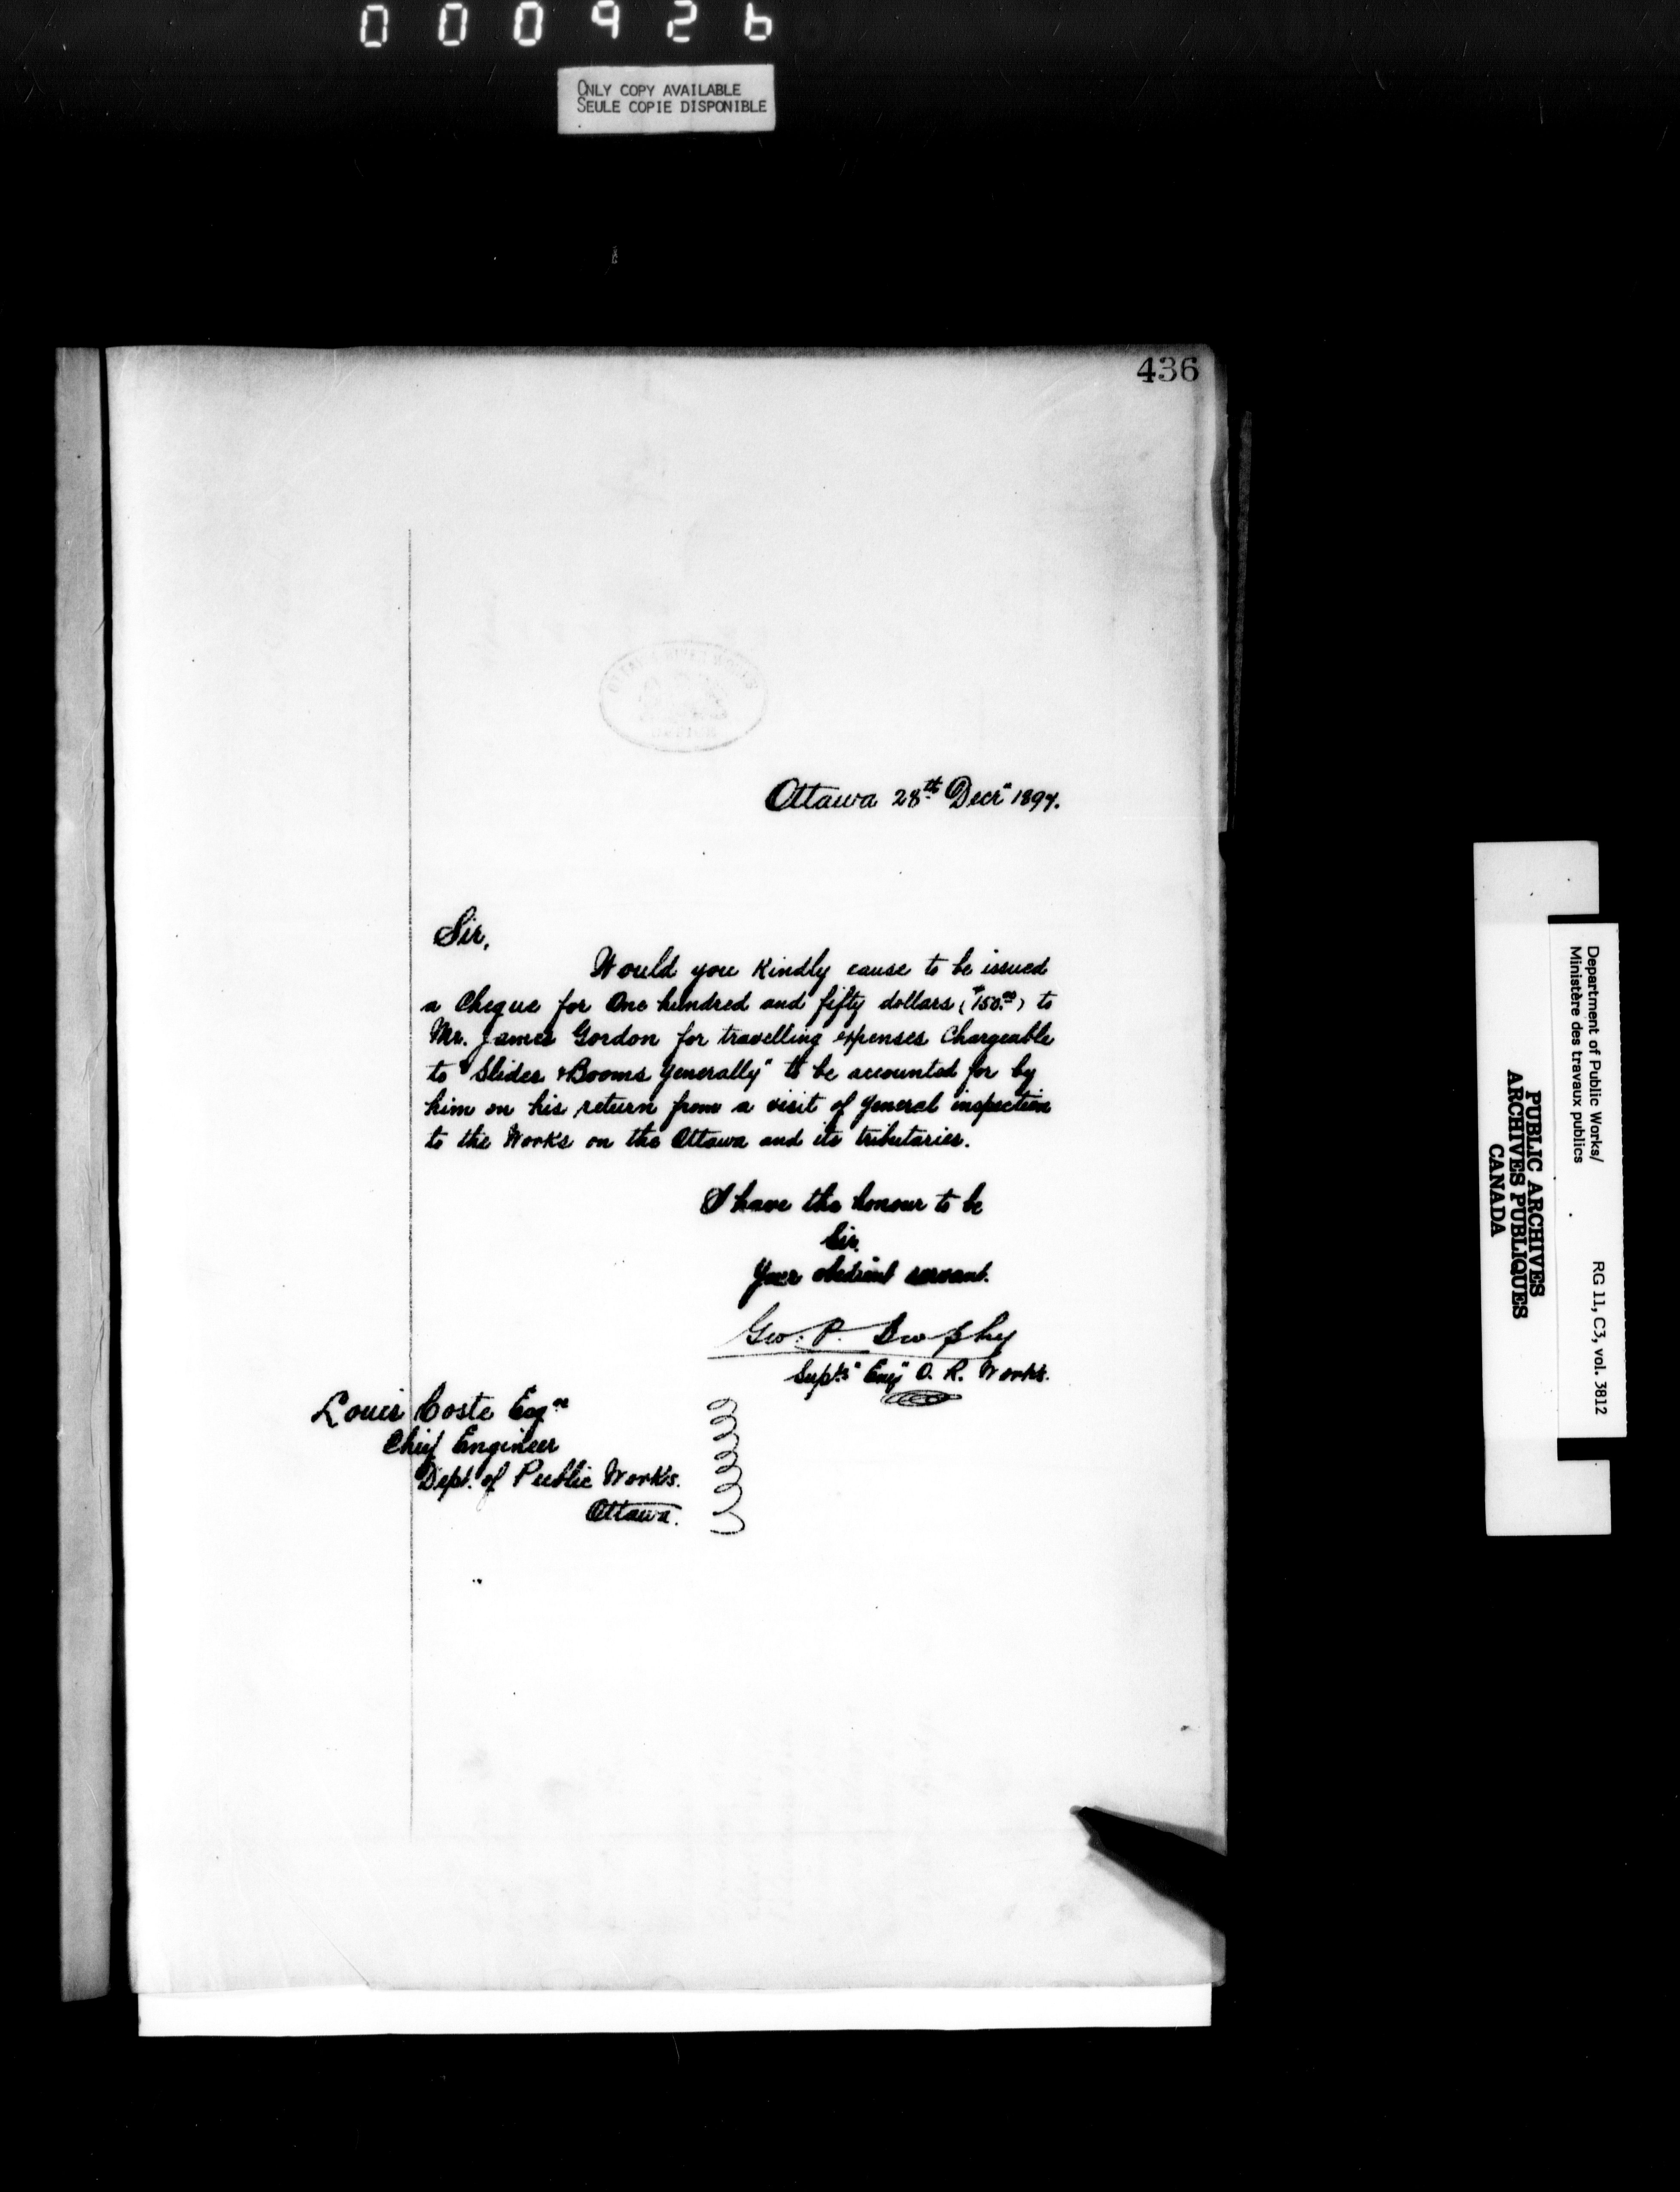 000926
ONLY COPY AVAILABLE
SEULE COPIE DISPONIBLE
436
OTTAWA RIVER WORKS
Ottawa 28th Decr 1897.
Sir,
Would you Kindly cause to be issued
a Cheque for One hundred and fifty dollars ($150.00) to
Mr. James Gordon for travelling expenses Chargeable
to "Slides & Booms generally" to be accounted for by
him on his return from a visit of general inspection
to the Works on the Ottawa and its tributaries.
I have the honour to be
Sir,
Your obedient servant.
Geo. P. Brophy
Supt'g Eng' O. R. Works.
Louis Coste Esqre
Chief Engineer
Dept. of Public Works.
Ottawa.
Department of Public Works/
Ministère des travaux publics
RG 11, C3, vol. 3812
PUBLIC ARCHIVES
ARCHIVES PUBLIQUES
CANADA